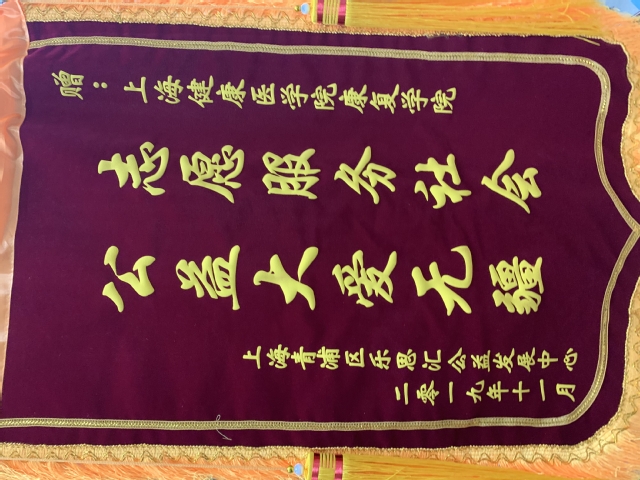 赠：上海健康医学院康复学院
志愿服务社会
公益大爱无疆
上海青浦区乐思汇公益发展中心
二零一九年十一月